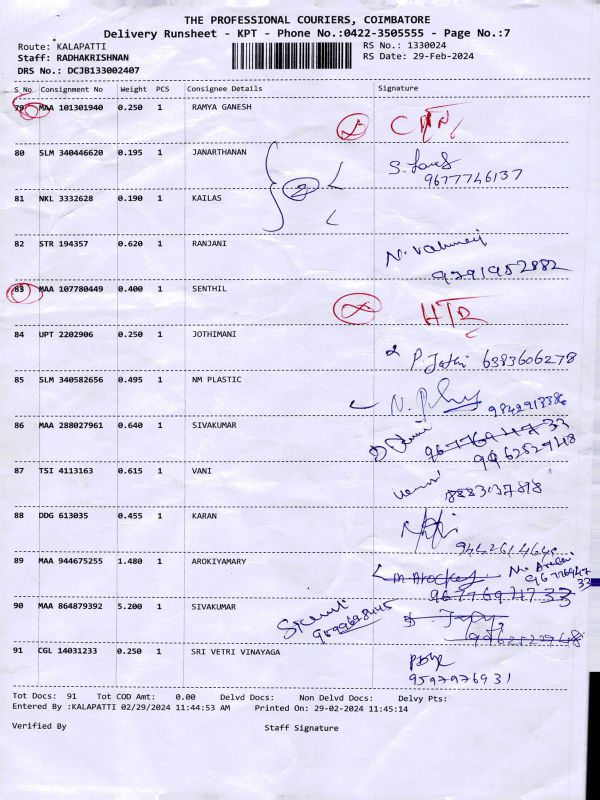 THE PROFESSIONAL COURIERS, COIMBATORE
Delivery Runsheet - KPT - Phone No.:0422-3505555 - Page No.:7
Route: KALAPATTI RS No.: 1330024
Staff: RADHAKRISHNAN RS Date: 29-Feb-2024
DRS No.: DCJB133002407
S No Consignment No Weight PCS Consignee Details Signature
79 MAA 101301940 0.250 1 RAMYA GANESH
80 SLM 340446620 0.195 1 JANARTHANAN
9677746137
2
81 NKL 3332628 0.190 1 KAILAS
82 STR 194357 0.620 1 RANJANI
9791952882
83 MAA 107780449 0.400 1 SENTHIL
84 UPT 2202906 0.250 1 JOTHIMANI
P. Jothi 6383606278
85 SLM 340582656 0.495 1 NM PLASTIC
86 MAA 288027961 0.640 1 SIVAKUMAR
9677694733
87 TSI 4113163 0.615 1 VANI
88 DDG 613035 0.455 1 KARAN
89 MAA 944675255 1.480 1 AROKIYAMARY
9677694733
9677694733
90 MAA 864879392 5.200 1 SIVAKUMAR
91 CGL 14031233 0.250 1 SRI VETRI VINAYAGA
9597976931
Tot Docs: 91 Tot COD Amt: 0.00 Delvd Docs: Non Delvd Docs: Delvy Pts:
Entered By :KALAPATTI 02/29/2024 11:44:53 AM Printed On: 29-02-2024 11:45:14
Verified By Staff Signature